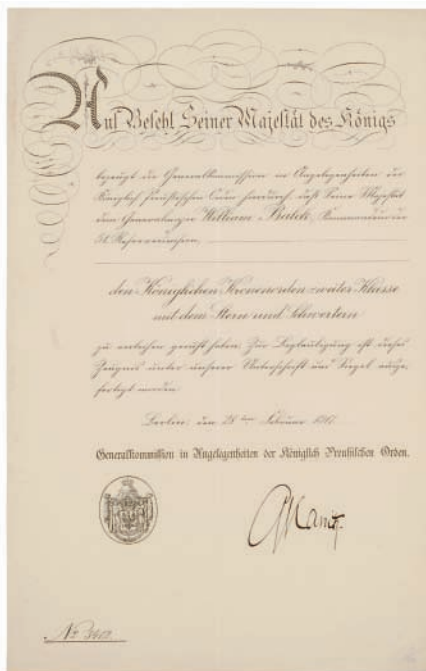 Auf Befehl Seiner Majestät des Königs
bezeugt die Generalkommission in Angelegenheiten der
Königlich Preußischen Orden hierdurch, daß Seine Majestät
dem Generalmajor William Balck, Kommandeur der
51. Reservedivision,
den Königlichen Kronenorden zweiter Klasse
mit dem Stern und Schwertern
zu verleihen geruht haben. Zur Beglaubigung ist dieses
Zeugnis unter unserer Unterschrift und Siegel ausge-
fertigt worden.
Berlin, den 28ten Februar 1917.
Generalkommission in Angelegenheiten der Königlich Preußischen Orden.
№